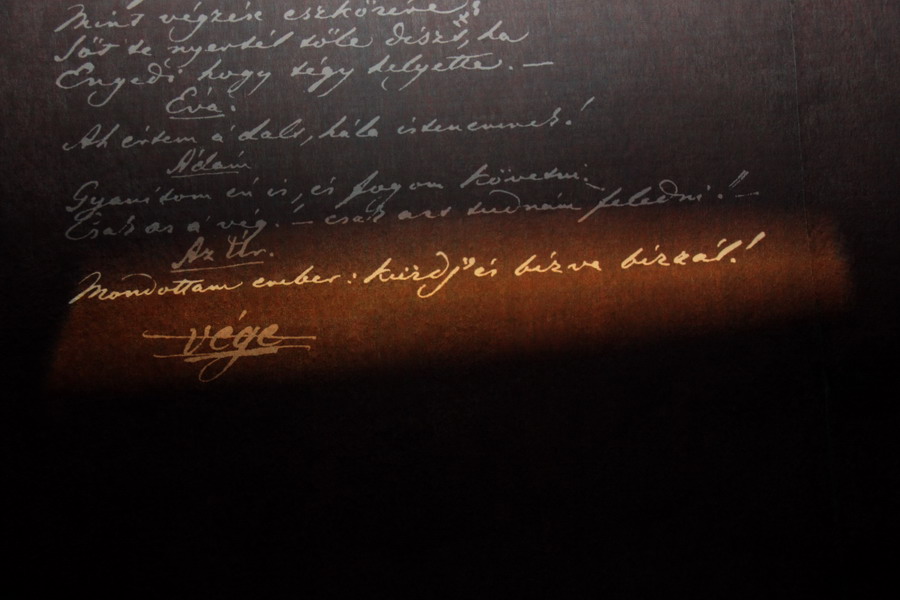 Mint végzés eszközéne,
Sőt te nyertél tőle díszt, ha
Engedi hogy légy helyette. —
Éva.
Ah értem a dalt, hála istenemnek!
Ádám
Gyanítom én is, és fogom követni. —
Csak az a vég! — csak azt tudnám feledni! —
Az Úr.
Mondottam ember: küzdj és bízva bízzál!
vége